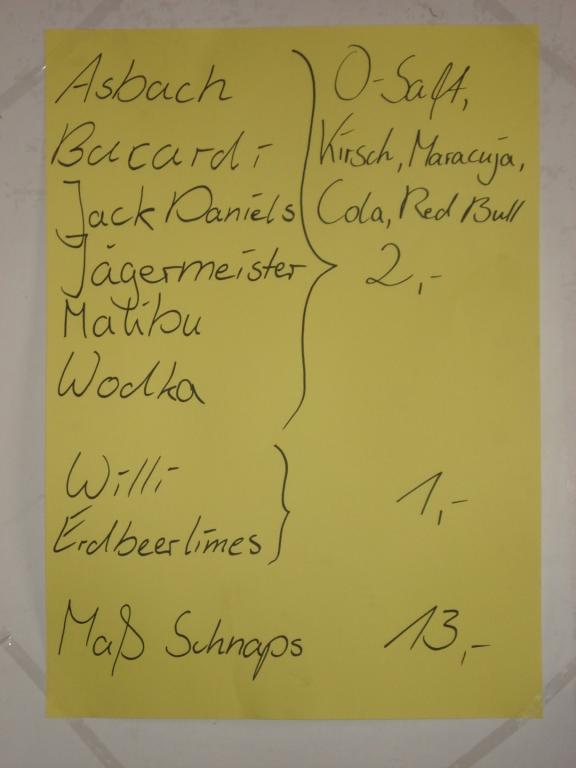 Asbach O-Saft,
Bacardi Kirsch, Maracuja,
Jack Daniels Cola, Red Bull
Jägermeister 2,-
Malibu
Wodka
Willi
Erdbeerlimes 1,-
Maß Schnaps 13,-